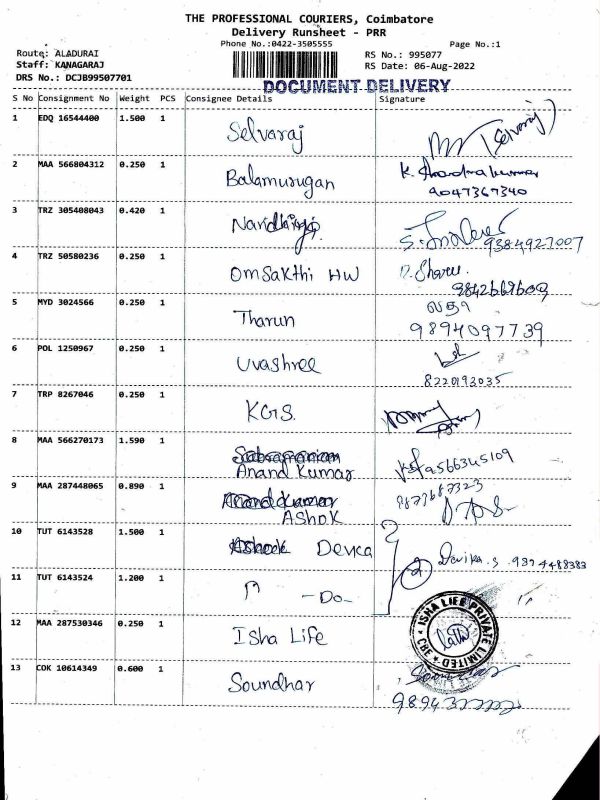 THE PROFESSIONAL COURIERS, Coimbatore
Delivery Runsheet - PRR
Phone No.:0422-3505555
Page No.:1
Route: ALADURAI
Staff: KANAGARAJ
DRS No.: DCJB99507701
RS No.: 995077
RS Date: 06-Aug-2022
DOCUMENT DELIVERY
S No Consignment No Weight PCS Consignee Details Signature
1 EDQ 16544400 1.500 1 Selvaraj (Selvaraj)
2 MAA 566804312 0.250 1 Balamurugan K. Chandra kumar
9047367340
3 TRZ 305408043 0.420 1
9384927007
4 TRZ 50580236 0.250 1 Omsakthi HW
5 MYD 3024566 0.250 1 Tharun லதா
9894097739
6 POL 1250967 0.250 1 Uvashree
8220193035
7 TRP 8267046 0.250 1 KGS.
8 MAA 566270173 1.590 1 Anand Kumar 9566345109
9 MAA 287448065 0.890 1 Ashok
10 TUT 6143528 1.500 1 Devica
Devika.s. 9374488383
11 TUT 6143524 1.200 1 - Do - 2
12 MAA 287530346 0.250 1 Isha Life
ISHA LIFE PRIVATE LIMITED * CBE *
13 COK 10614349 0.600 1 Soundhar